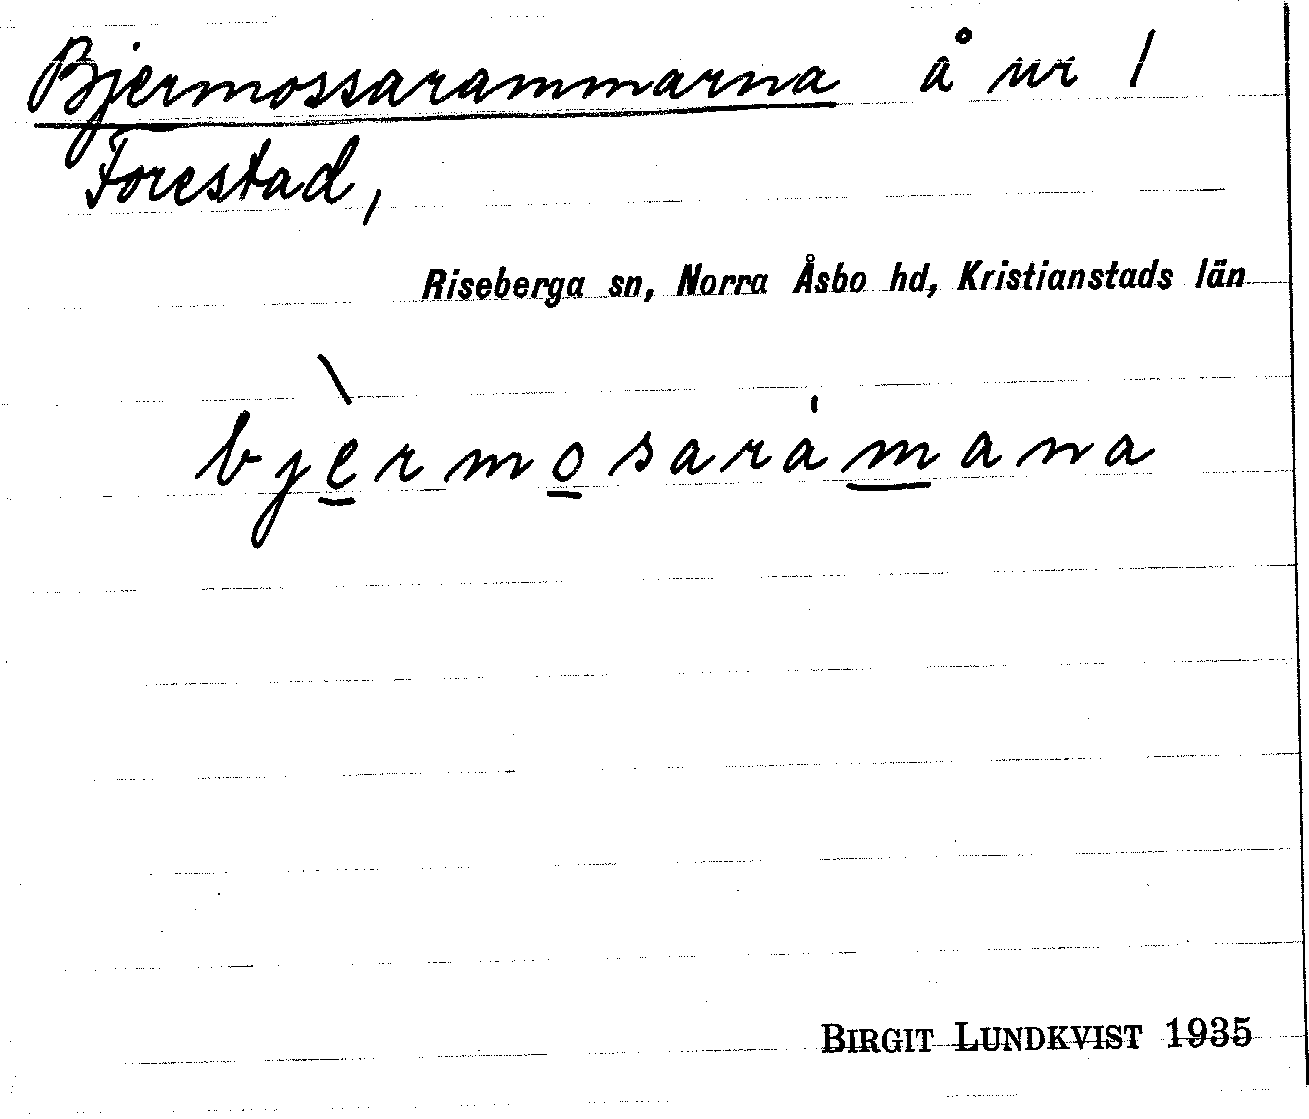 Bjermossarammarna å nr 1
Forestad,
Riseberga sn, Norra Åsbo hd, Kristianstads län
bjèrmosaràmana
BIRGIT LUNDKVIST 1935